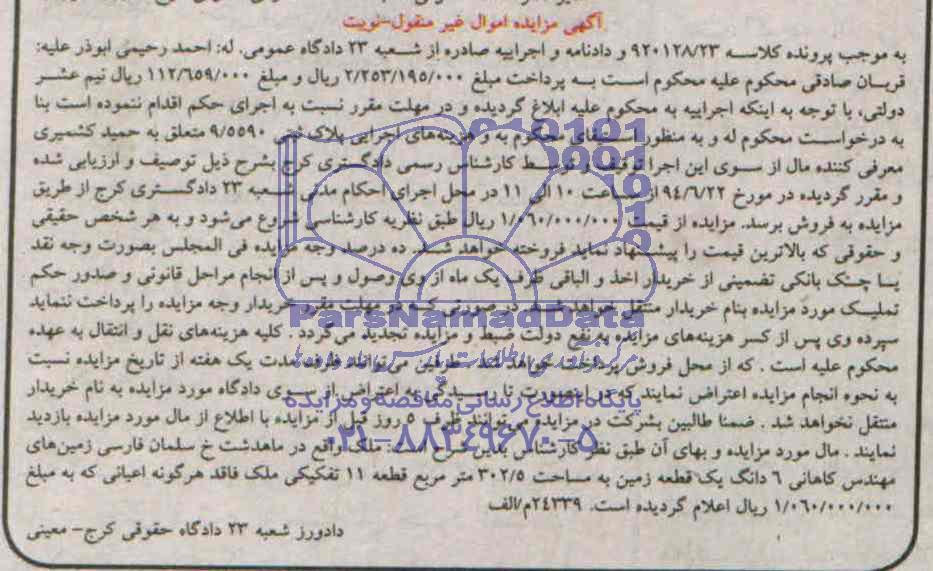 آگهی مزایده اموال غیر منقول-نوبت
به موجب پرونده کلاسه ۹۲۰۱۲۸/۲۳ و دادنامه و اجراییه صادره از شعبه ۲۳ دادگاه عمومی. له: احمد رحیمی ابوذر علیه:
قربان صادقی محکوم علیه محکوم است به پرداخت مبلغ ۲/۲۵۳/۱۹۵/۰۰۰ ریال و مبلغ ۱۱۲/۶۵۹/۰۰۰ ریال نیم عشر
دولتی، با توجه به اینکه اجراییه به محکوم علیه ابلاغ گردیده و در مهلت مقرر نسبت به اجرای حکم اقدام ننموده است بنا
به درخواست محکوم له و به منظور استیفای محکوم به و هزینه‌های اجرایی پلاک ثبتی ۹/۵۵۹۰ متعلق به حمید کشمیری
معرفی کننده مال از سوی این اجرا توقیف و توسط کارشناس رسمی دادگستری کرج بشرح ذیل توصیف و ارزیابی شده
و مقرر گردیده در مورخ ۹۴/۶/۲۲ از ساعت ۱۰ الی ۱۱ در محل اجرای احکام مدنی شعبه ۲۳ دادگستری کرج از طریق
مزایده به فروش برسد. مزایده از قیمت ۱/۰۶۰/۰۰۰/۰۰۰ ریال طبق نظریه کارشناسی شروع می‌شود و به هر شخص حقیقی
و حقوقی که بالاترین قیمت را پیشنهاد نماید فروخته خواهد شد. ده درصد وجه مزایده فی المجلس بصورت وجه نقد
یا چک بانکی تضمینی از خریدار اخذ و الباقی ظرف یک ماه از وی وصول و پس از انجام مراحل قانونی و صدور حکم
تملیک مورد مزایده بنام خریدار منتقل خواهد شد. در صورتی که در مهلت مقرر خریدار وجه مزایده را پرداخت ننماید
سپرده وی پس از کسر هزینه‌های مزایده به نفع دولت ضبط و مزایده تجدید می‌گردد. کلیه هزینه‌های نقل و انتقال به عهده
محکوم علیه است. که از محل فروش پرداخته خواهد شد. طرفین می‌توانند ظرف مدت یک هفته از تاریخ مزایده نسبت
به نحوه انجام مزایده اعتراض نمایند که در اینصورت تا رسیدگی به اعتراض از سوی دادگاه مورد مزایده به نام خریدار
منتقل نخواهد شد. ضمنا طالبین بشرکت در مزایده می‌توانند ظرف ۵ روز قبل از مزایده با اطلاع از مال مورد مزایده بازدید
نمایند. مال مورد مزایده و بهای آن طبق نظر کارشناس بدین شرح است: ملک واقع در ماهدشت خ سلمان فارسی زمین‌های
مهندس کاهانی ۶ دانگ یک قطعه زمین به مساحت ۳۰۲/۵ متر مربع قطعه ۱۱ تفکیکی ملک فاقد هرگونه اعیانی که به مبلغ
۱/۰۶۰/۰۰۰/۰۰۰ ریال اعلام گردیده است. ۲۴۳۳۹م/الف
دادورز شعبه ۲۳ دادگاه حقوقی کرج- معینی
ParsNamadData
پایگاه اطلاع رسانی مناقصه و مزایده
۰۲۱-۸۸۳۴۹۶۷۰-۵